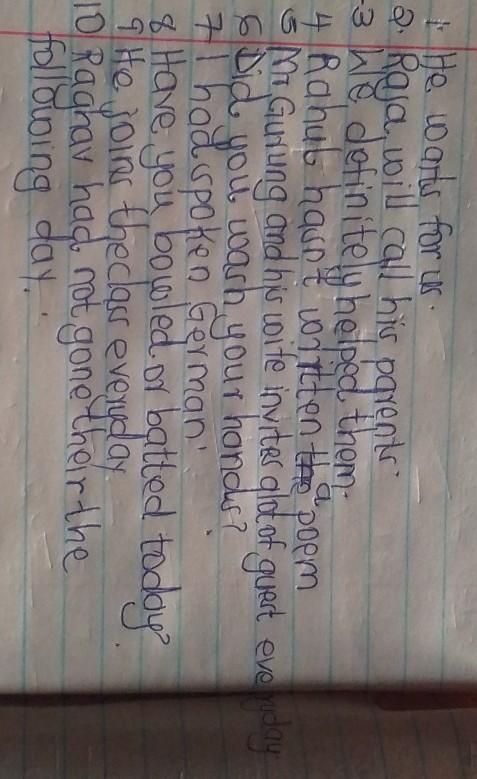 1. He waits for us.
2. Raja will call his parents.
3 We definitely helped them.
4 Rahul hasn't written a poem
5 Mr Gurung and his wife invites alot of guest everyday
6 Did you wash your hands?
7 I had spoken German.
8 Have you bowled or batted today?
9 He joins the class everyday
10 Raghav had not gone their the
following day.